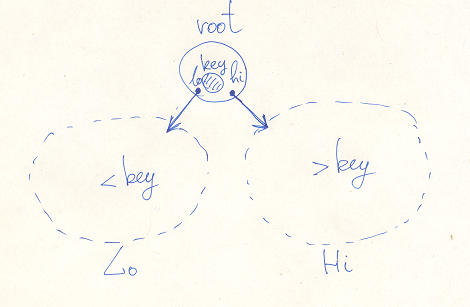 root
key
lo hi
< key
> key
Lo
Hi